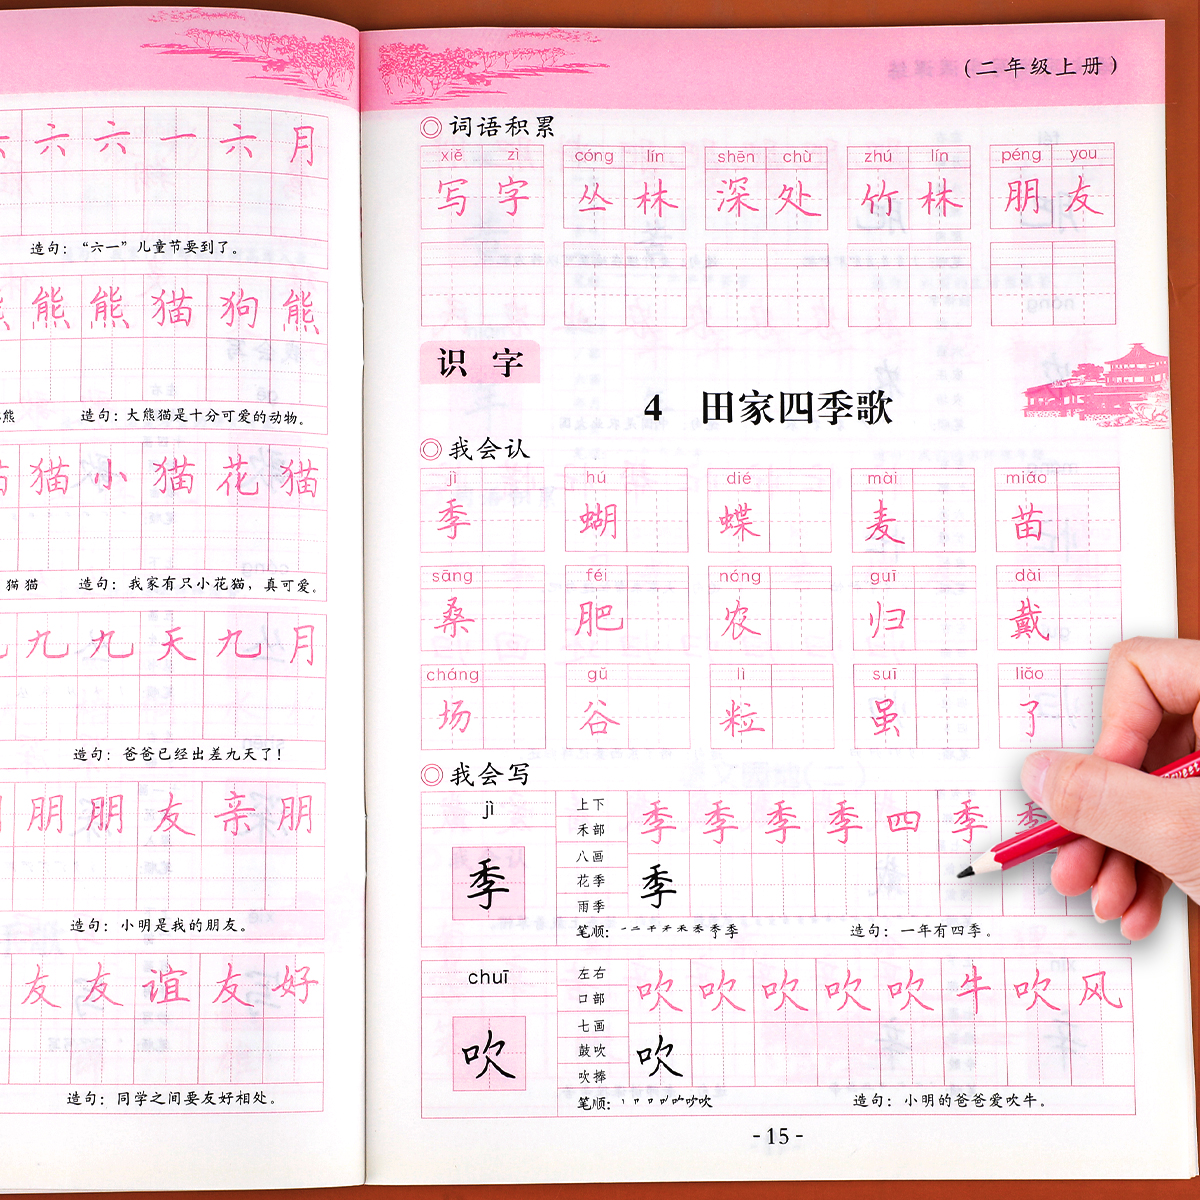 六 六 一 六 月
造句：“六一”儿童节要到了。
熊 熊 猫 狗 熊
熊 造句：大熊猫是十分可爱的动物。
猫 小 猫 花 猫
猫猫 造句：我家有只小花猫，真可爱。
九 九 天 九 月
造句：爸爸已经出差九天了！
朋 朋 友 亲 朋
造句：小明是我的朋友。
友 友 谊 友 好
造句：同学之间要友好相处。
（二年级上册）
◎词语积累
xiě zì cóng lín shēn chù zhú lín péng you
写字 丛林 深处 竹林 朋友
识字
4 田家四季歌
◎我会认
jì hú dié mài miáo
季 蝴 蝶 麦 苗
sāng féi nóng guī dài
桑 肥 农 归 戴
cháng gǔ lì suī liǎo
场 谷 粒 虽 了
◎我会写
jì
季
上下
禾部
八画
花季
雨季
季 季 季 季 四 季 季
季
笔顺：一二千千禾禾季季
造句：一年有四季。
chuī
吹
左右
口部
七画
鼓吹
吹捧
吹 吹 吹 吹 吹 牛 吹 风
吹
笔顺：
造句：小明的爸爸爱吹牛。
-15-